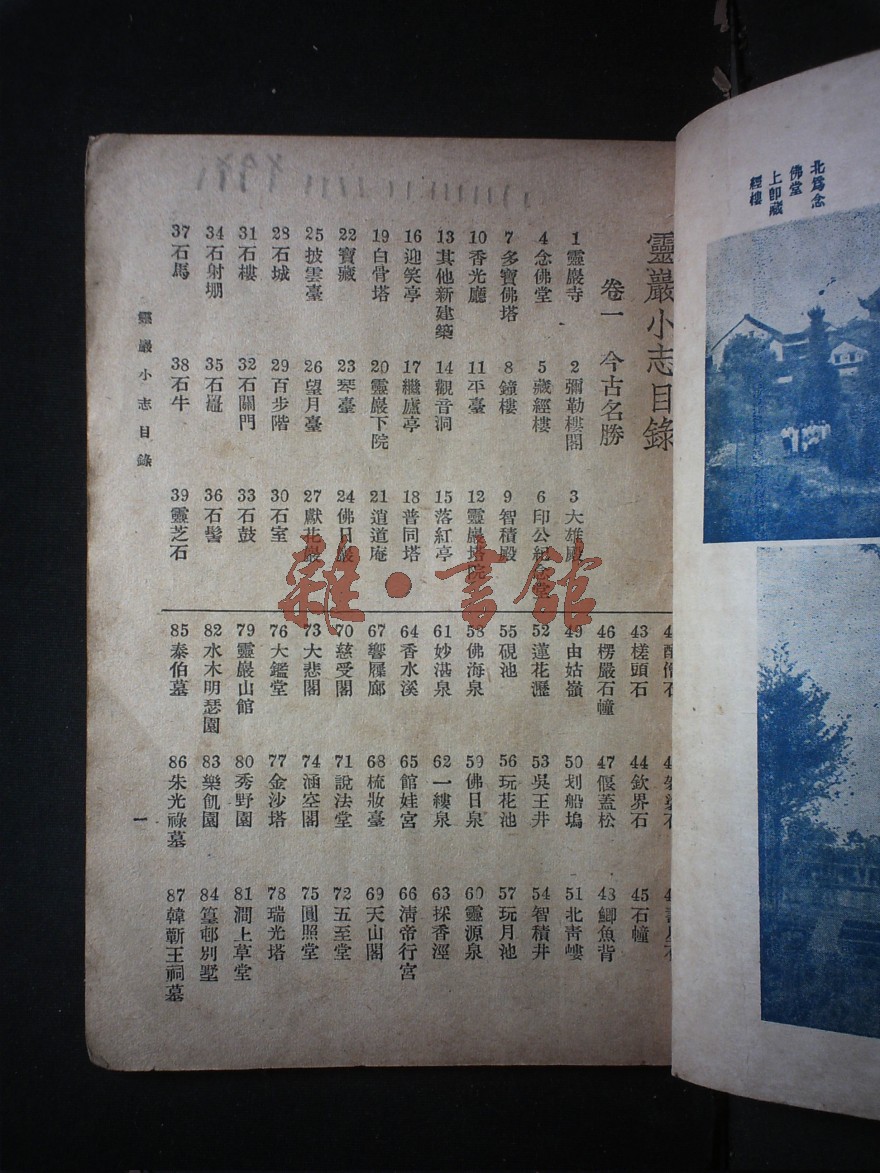 北爲念
佛堂
上卽藏
經樓
靈巖小志目錄
卷一 今古名勝
1 靈巖寺 2 彌勒樓閣 3 大雄殿
4 念佛堂 5 藏經樓 6 印公紀念堂
7 多寶佛塔 8 鐘樓 9 智積殿
10 香光廳 11 平臺 12 靈巖塔院
13 其他新建築 14 觀音洞 15 落紅亭
16 迎笑亭 17 繼廬亭 18 普同塔
19 白骨塔 20 靈巖下院 21 逍道庵
22 寶藏 23 琴臺 24 佛日巖
25 披雲臺 26 望月臺 27 獻花巖
28 石城 29 百步階 30 石室
31 石樓 32 石關門 33 石鼓
34 石射堋 35 石 36 石髻
37 石馬 38 石牛 39 靈芝石
醉僧石 袈裟石
43 槎頭石 44 欽界石 45 石幢
46 楞嚴石幢 47 偃蓋松 48 鯽魚背
49 由姑嶺 50 划船塢 51 北靑嶁
52 蓮花瀝 53 吳王井 54 智積井
55 硯池 56 玩花池 57 玩月池
58 佛海泉 59 佛日泉 60 靈源泉
61 妙湛泉 62 一縷泉 63 採香涇
64 香水溪 65 館娃宮 66 清帝行宮
67 響屧廊 68 梳妝臺 69 天山閣
70 慈受閣 71 說法堂 72 五至堂
73 大悲閣 74 涵空閣 75 圓照堂
76 大鑑堂 77 金沙塔 78 瑞光塔
79 靈巖山館 80 秀野園 81 澗上草堂
82 水木明瑟園 83 樂飢園 84 篁邨別墅
85 泰伯墓 86 朱光祿墓 87 韓蘄王祠墓
靈巖小志目錄
一
雜·書館